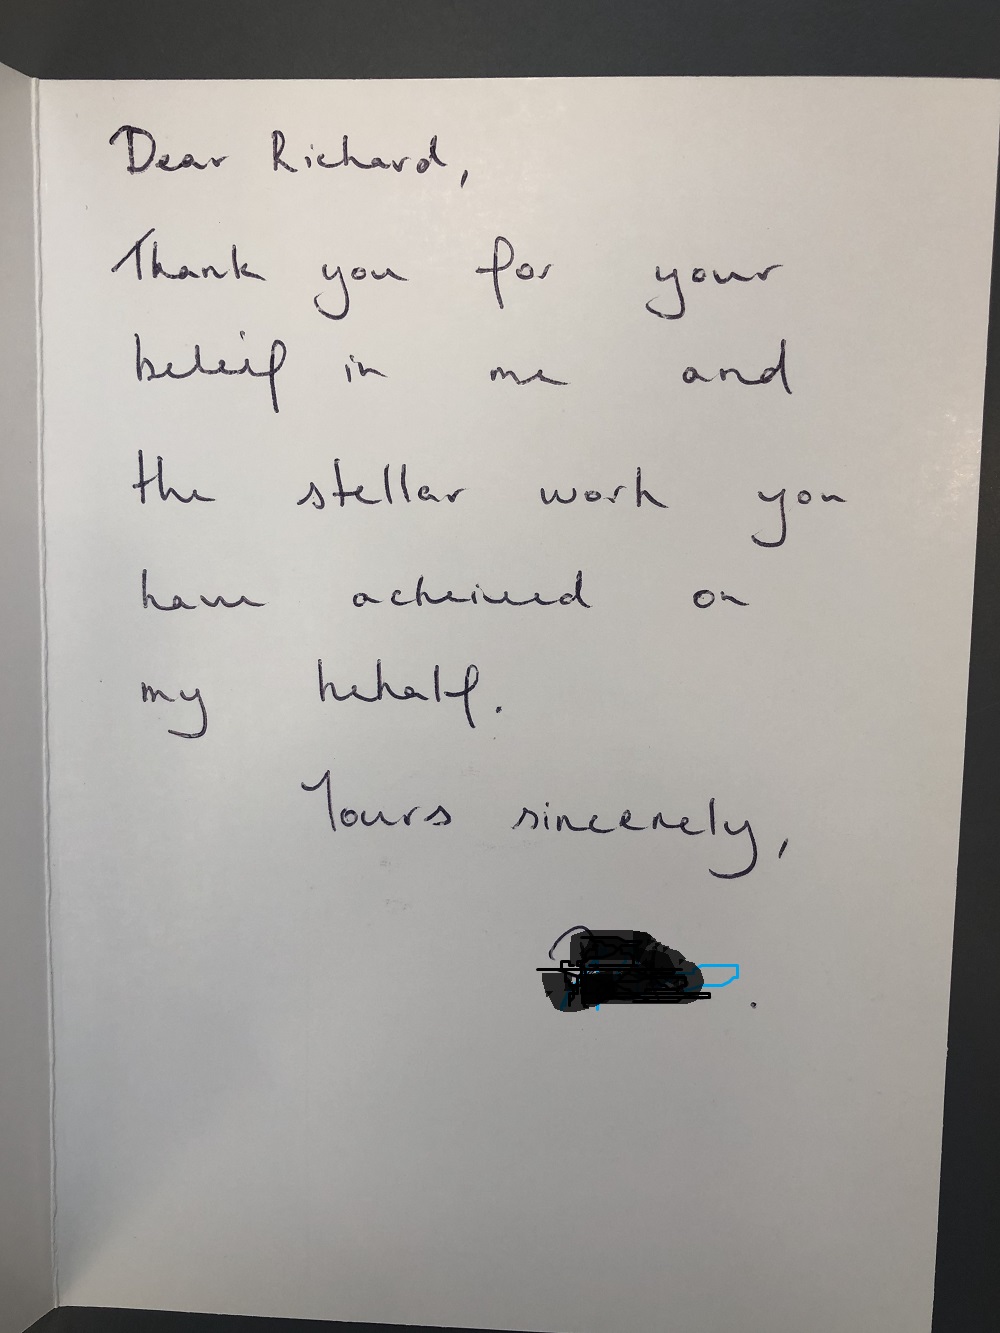 Dear Richard,
Thank you for your
beleif in me and
the stellar work you
have acheived on
my behalf.
Yours sincerely,